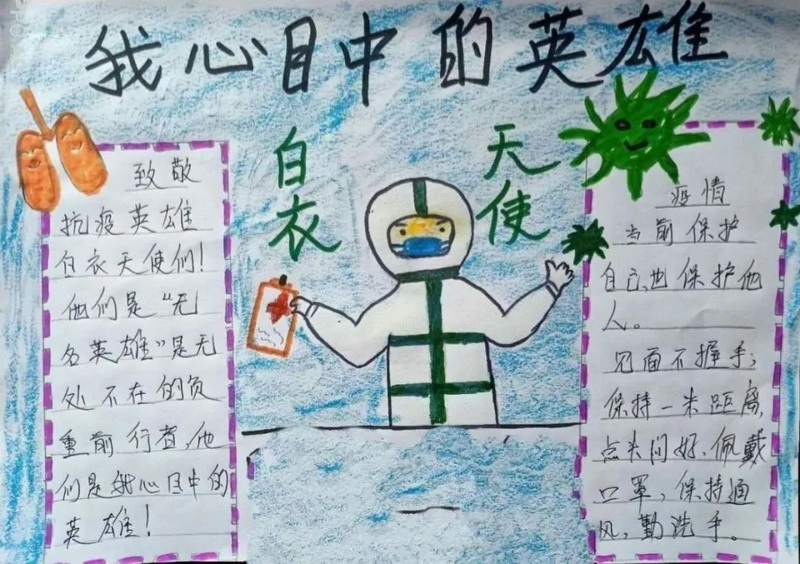 我心目中的英雄
白衣
天使
致敬
抗疫英雄
白衣天使们！
他们是“无
名英雄”是无
处不在的负
重前行者，他
们是我心目中的
英雄！
疫情
当前保护
自己，也保护他
人。
见面不握手；
保持一米距离，
点头问好、佩戴
口罩，保持通
风，勤洗手。